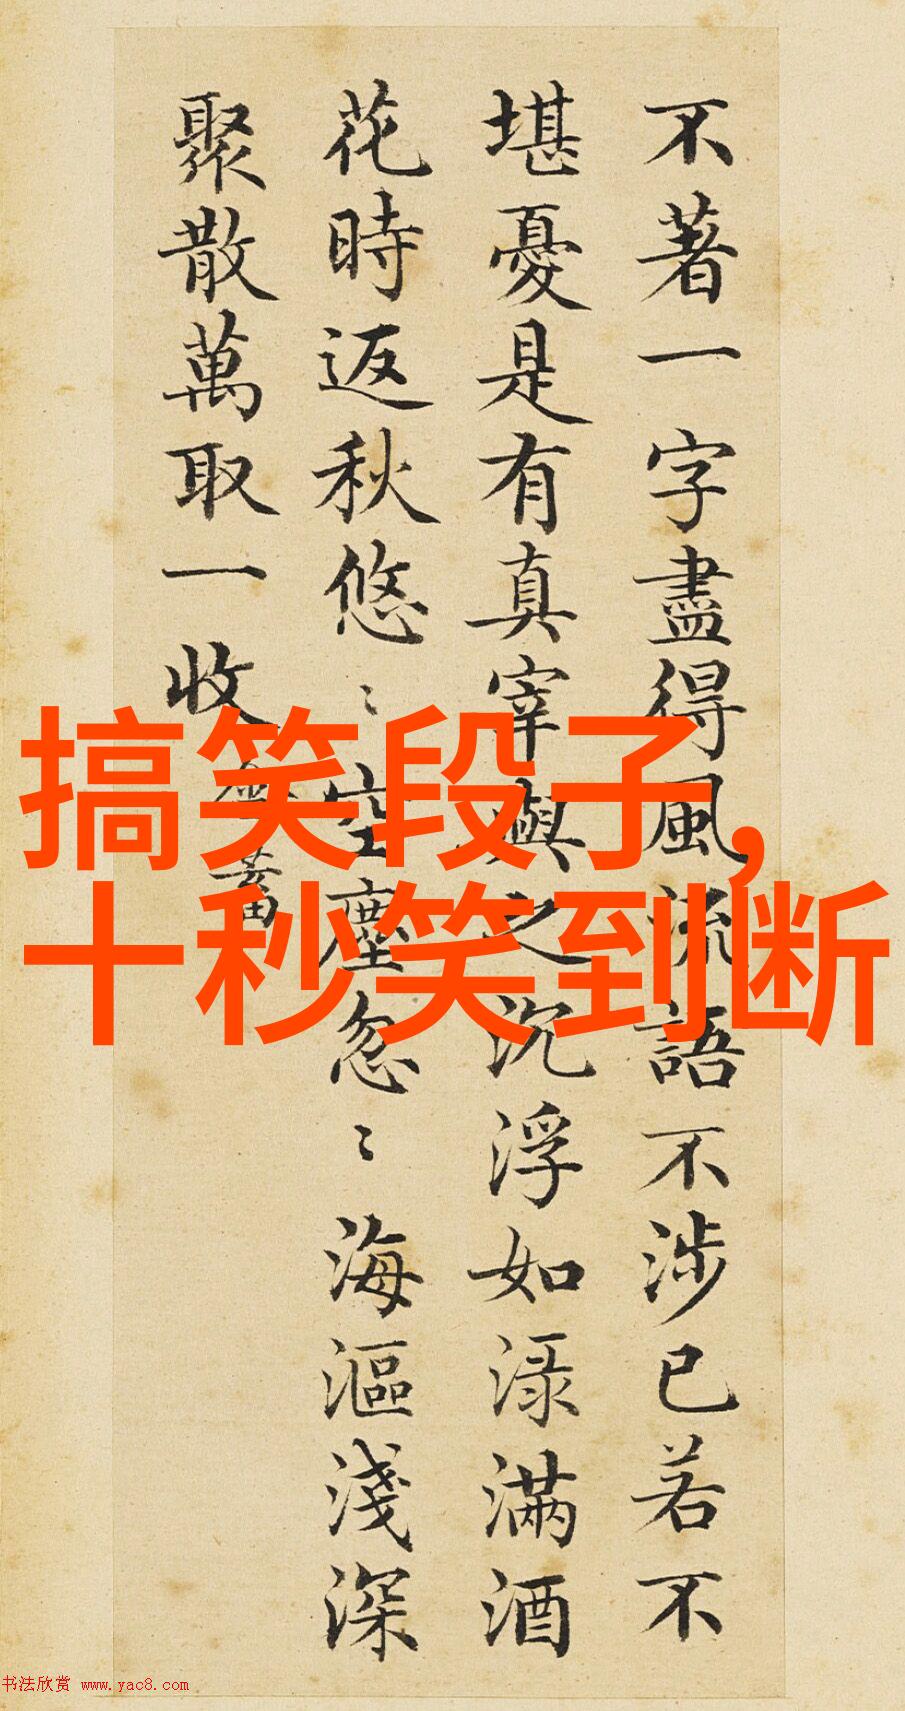 不著一字盡得風流語不涉已若不
堪憂是有真宰與之沉浮如渌滿酒
花時返秋悠〻空塵忽〻海漚淺深
聚散萬取一收
搞笑段子,
十秒笑到断
书法欣赏 www.yac8.com